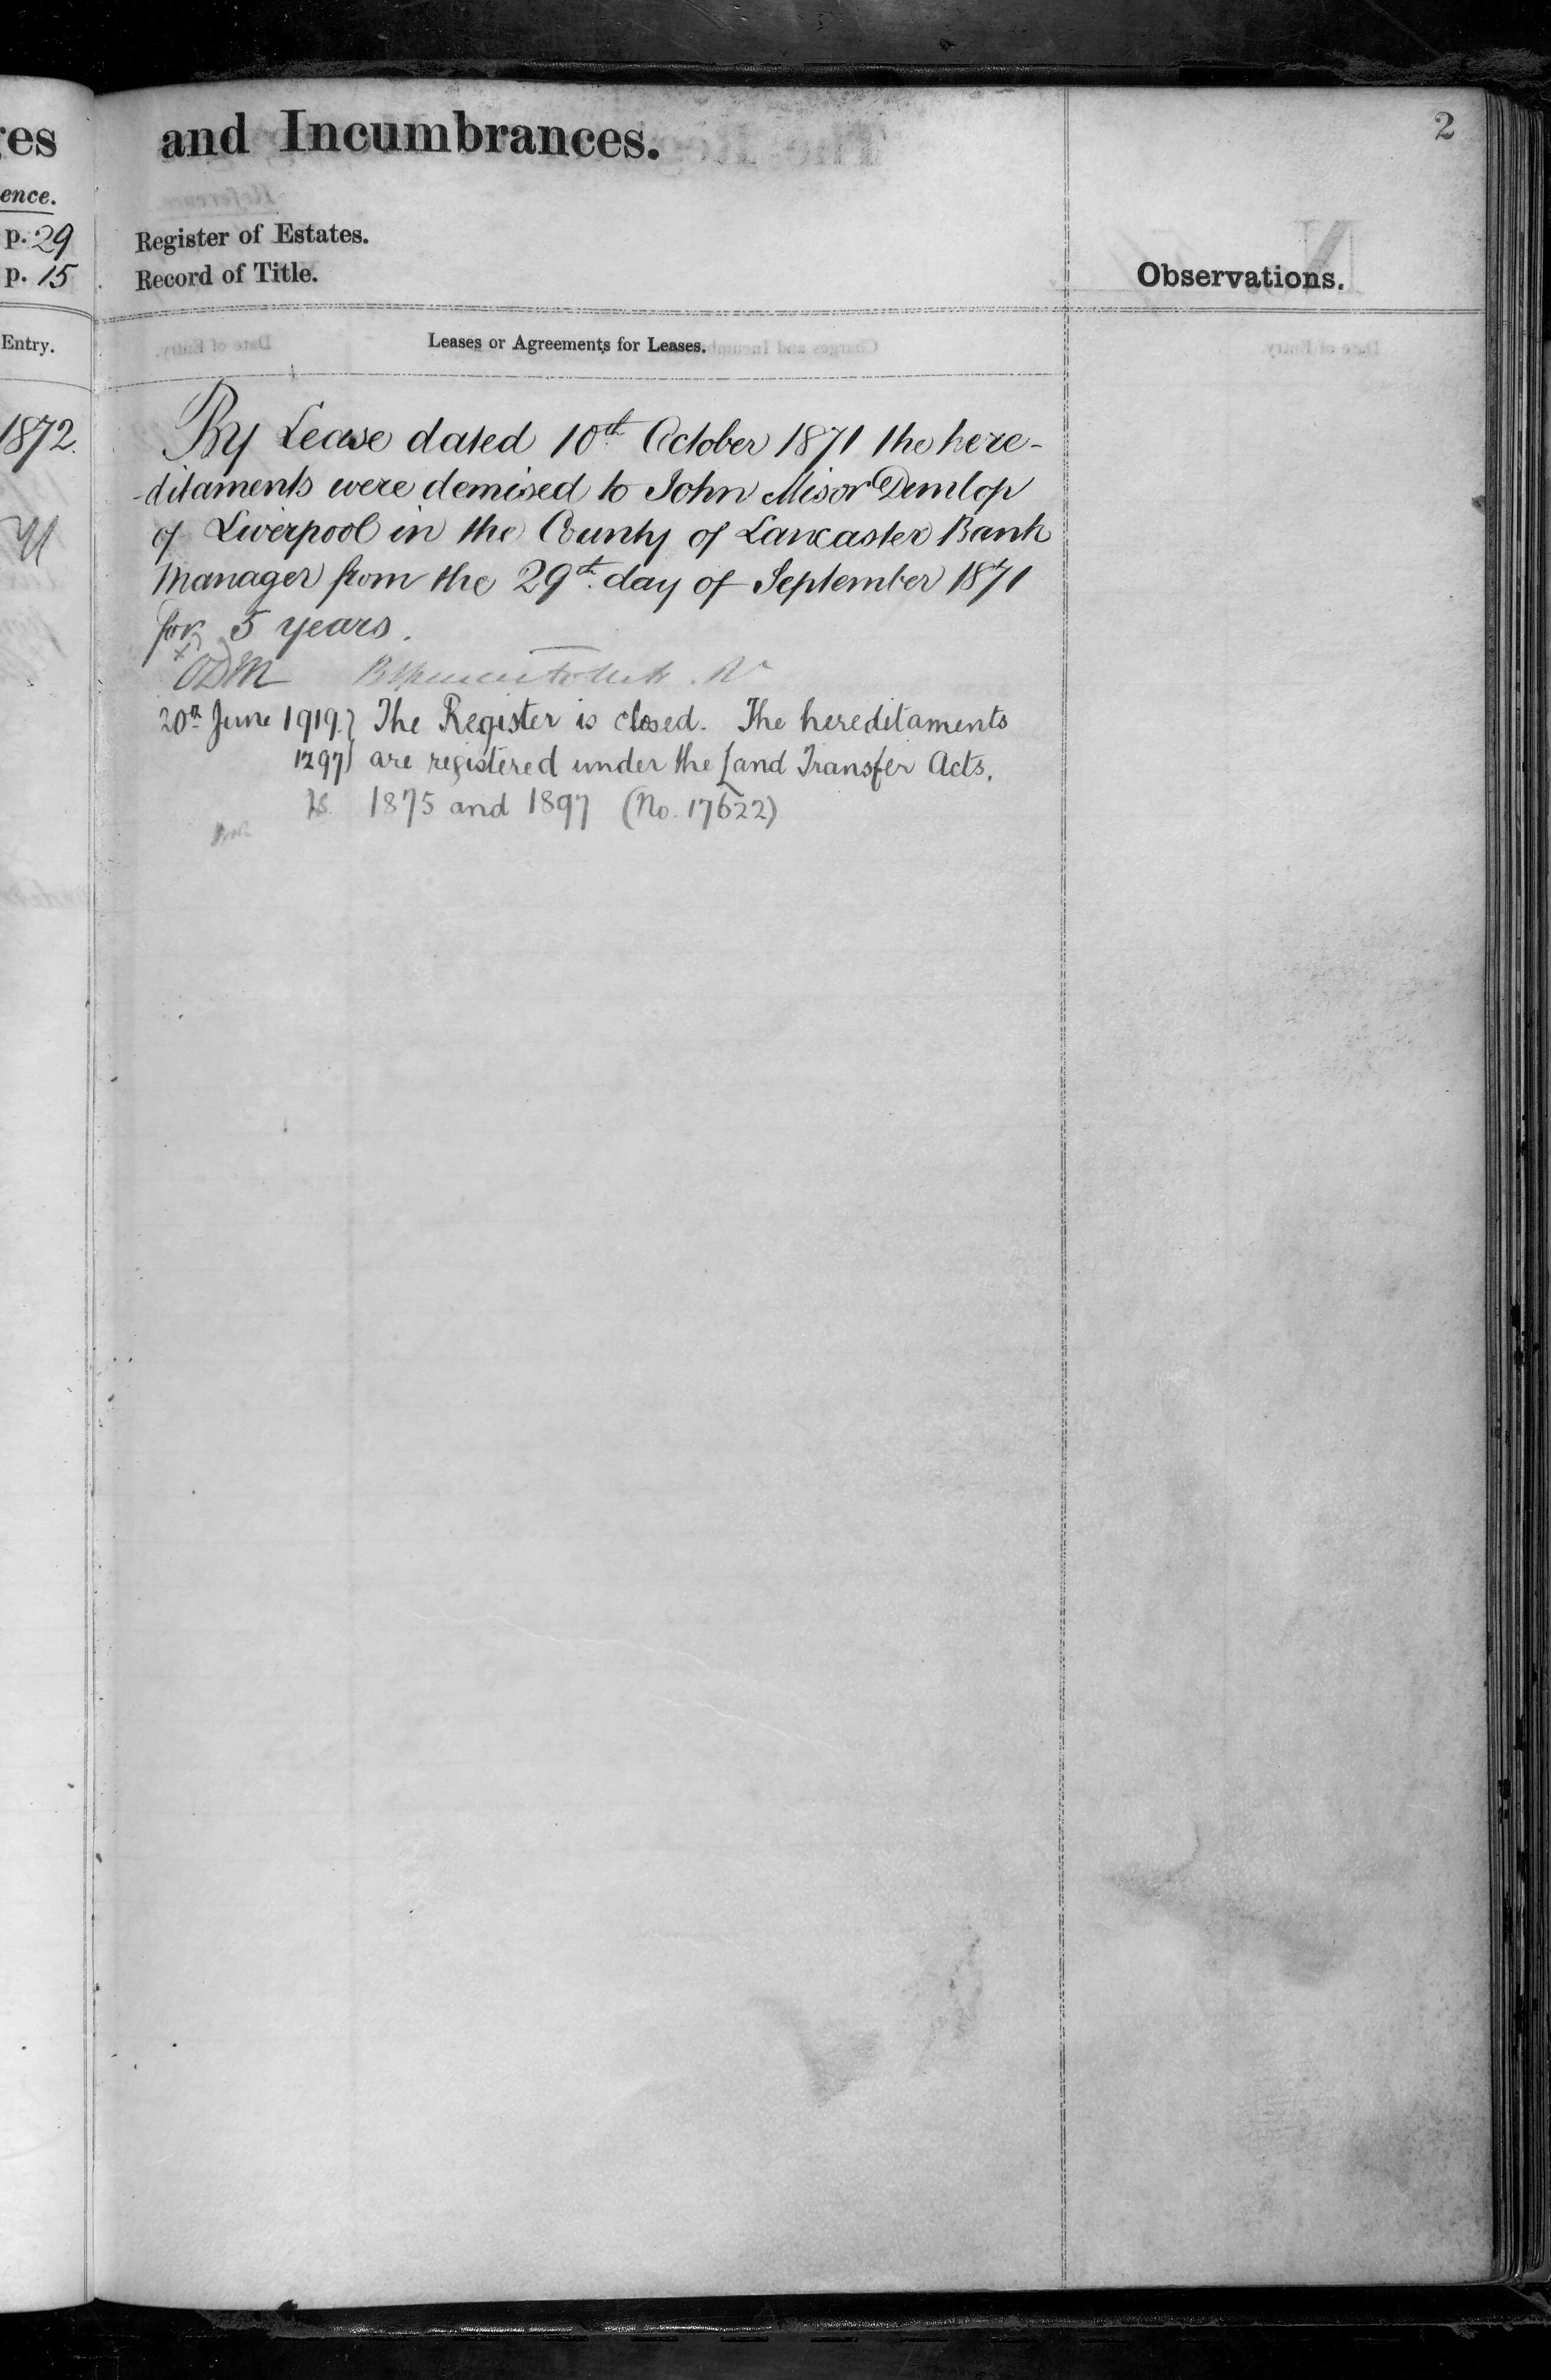 ges
ence.
p. 29
p. 15
Entry.
1872.
and Incumbrances.
Register of Estates.
Record of Title.
Leases or Agreements for Leases.
By Lease dated 10th October 1871 the here-
-ditaments were demised to John Misor Dunlop
of Liverpool in the County of Lancaster Bank
Manager from the 29th day of September 1871
for 5 years.
ODM
20th June 1919 } The Register is closed. The hereditaments
1297 } are registered under the Land Transfer Acts,
1875 and 1897 (No. 17622)
2
Observations.